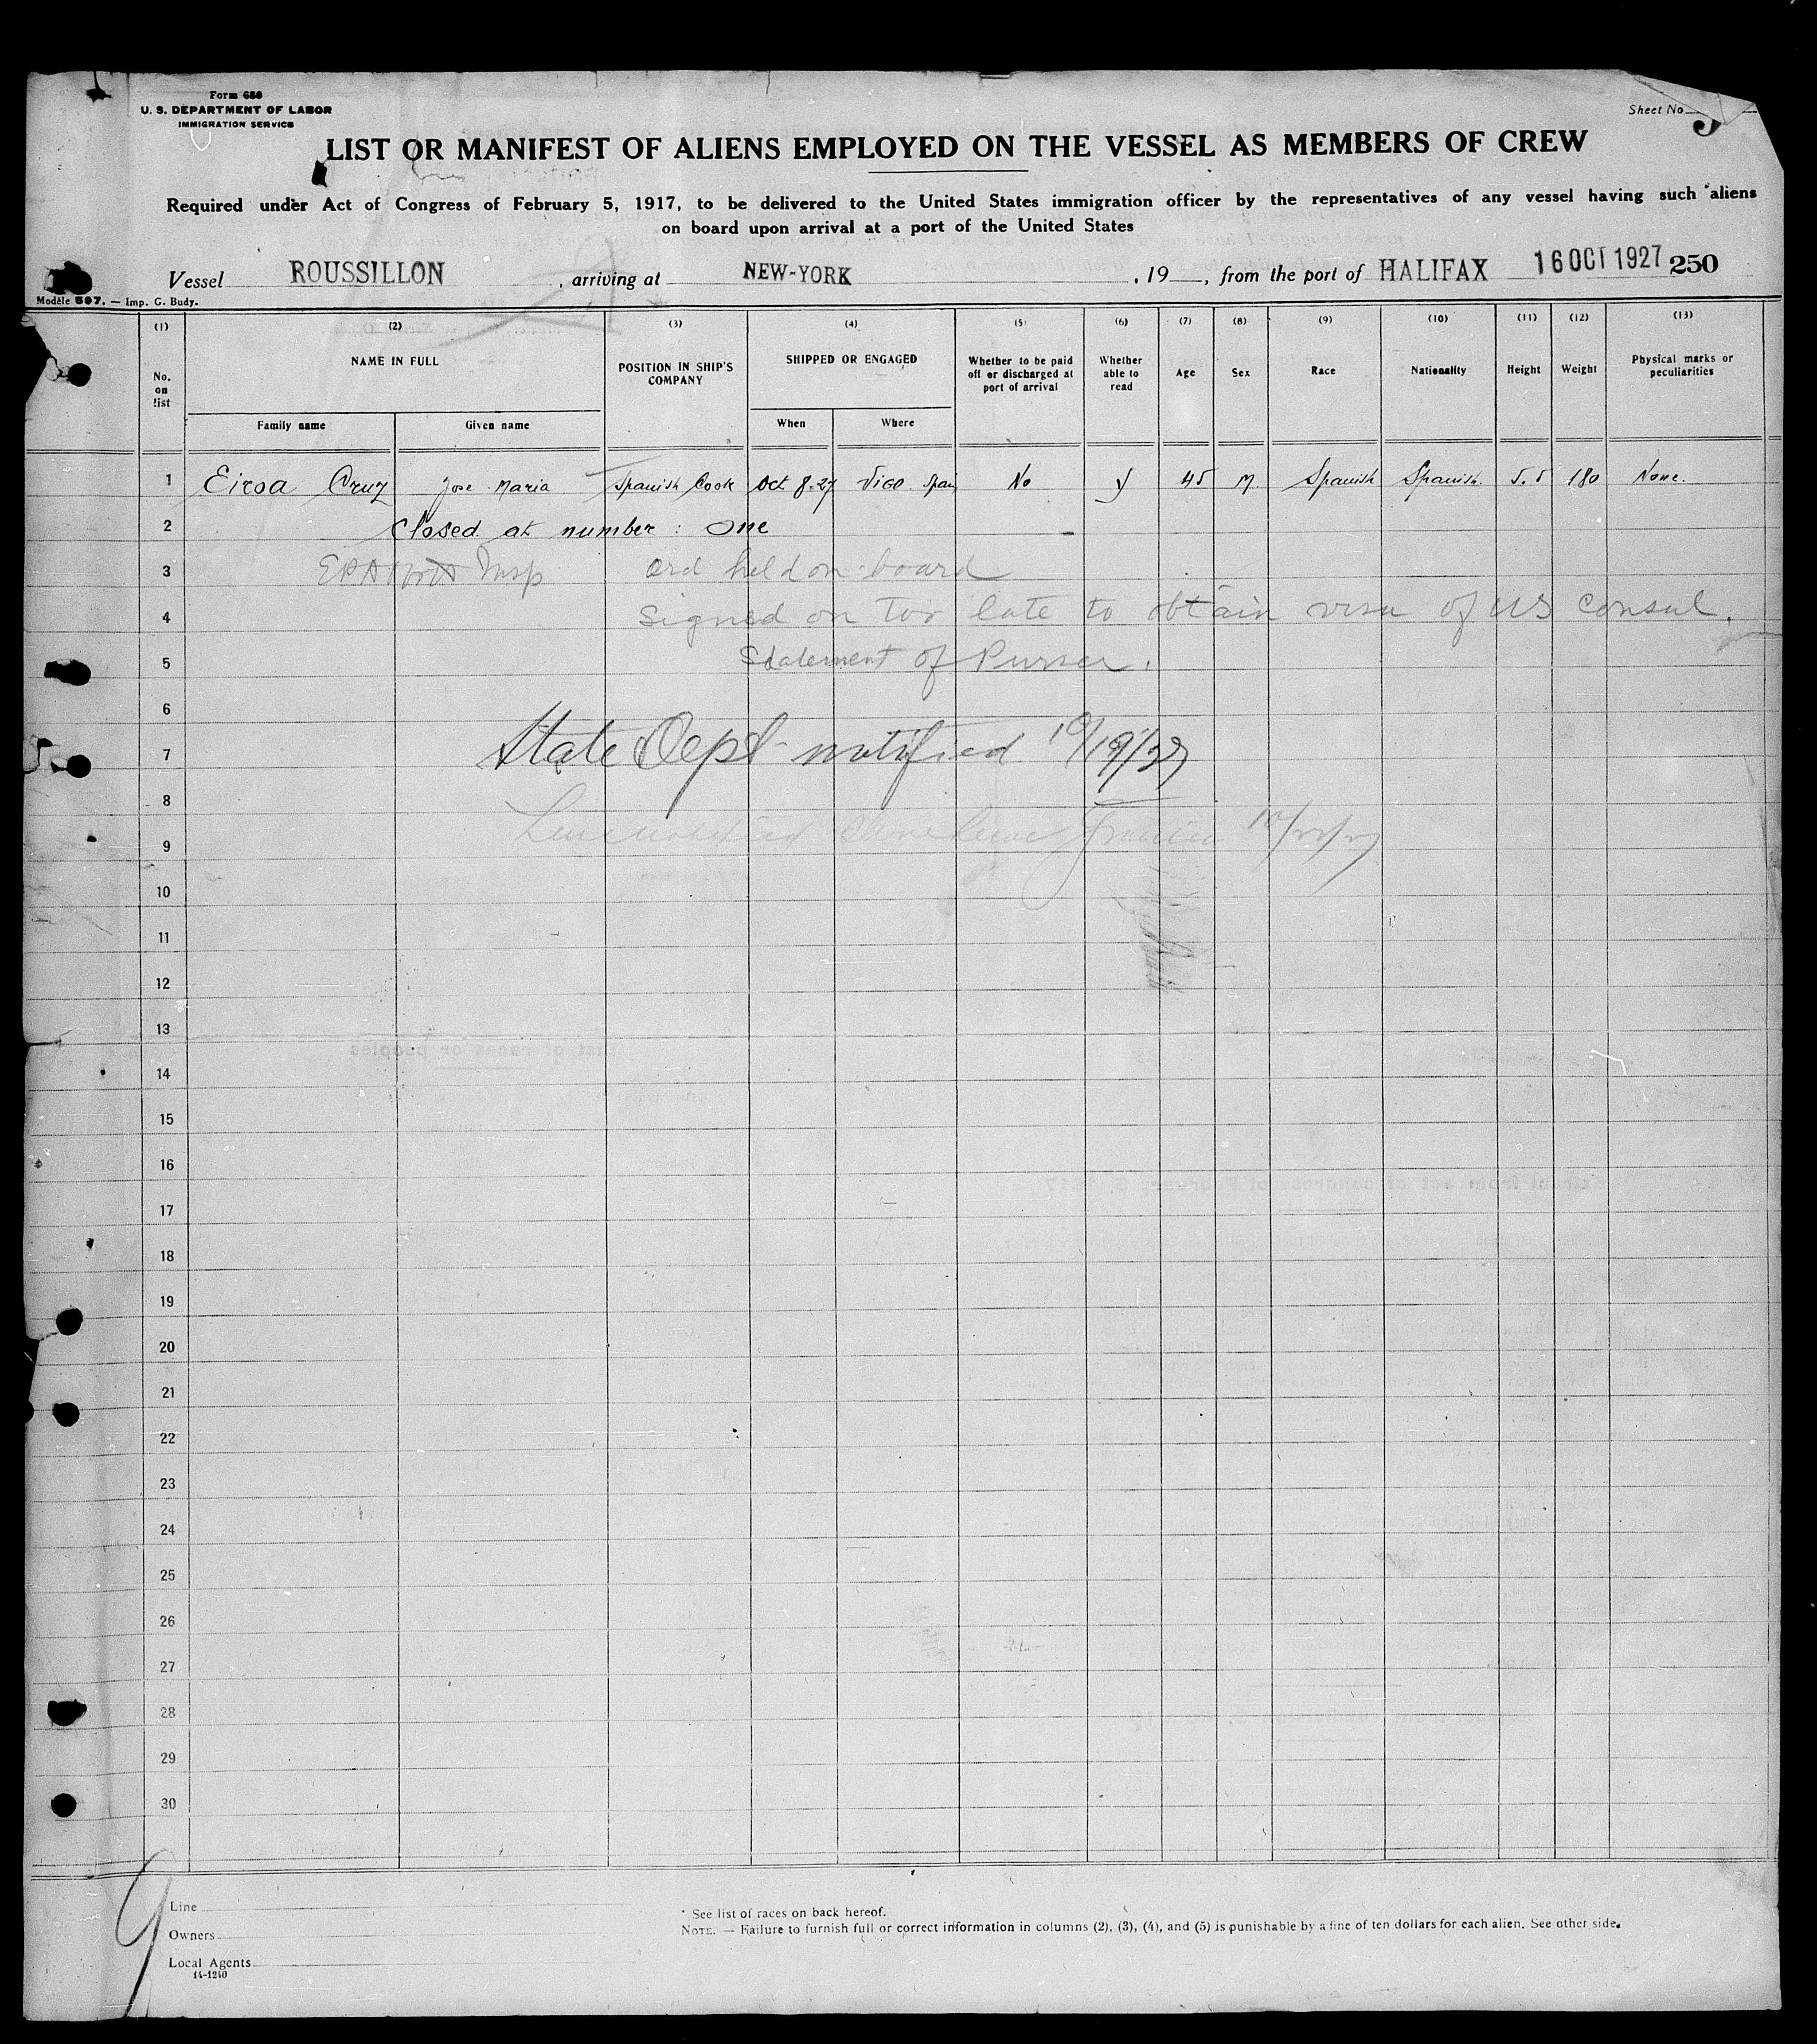 Form 680
U. S. DEPARTMENT OF LABOR
IMMIGRATION SERVICE
Sheet No
LIST OR MANIFEST OF ALIENS EMPLOYED ON THE VESSEL AS MEMBERS OF CREW
Required under Act of Congress of February 5, 1917, to be delivered to the United States immigration officer by the representatives of any vessel having such aliens
on board upon arrival at a port of the United States
Vessel ROUSSILLON , arriving at NEW-YORK , 19 , from the port of HALIFAX 16 OCT 1927 250
Modèle 697. — Imp. G. Budy.
(1) (2) (3) (4) (5) (6) (7) (8) (9) (10) (11) (12) (13)
No. on list NAME IN FULL POSITION IN SHIP'S COMPANY SHIPPED OR ENGAGED Whether to be paid off or discharged at port of arrival Whether able to read Age Sex Race Nationality Height Weight Physical marks or peculiarities
Family name Given name When Where
1 Eiroa Cruz Jose Maria Spanish Cook Oct 8.27 Vigo. Spain No y 45 M Spanish Spanish. 5.5 180 None.
2 Closed at number : One
3 Insp Ord held on board
4 Signed on too late to obtain visa of US Consul.
5 Statement of Purser.
6
7 State Dept notified 10/19/27
8
9
10
11
12
13
14
15
16
17
18
19
20
21
22
23
24
25
26
27
28
29
30
Line
Owners
Local Agents
14-1240
* See list of races on back hereof.
NOTE. — Failure to furnish full or correct information in columns (2), (3), (4), and (5) is punishable by a fine of ten dollars for each alien. See other side.